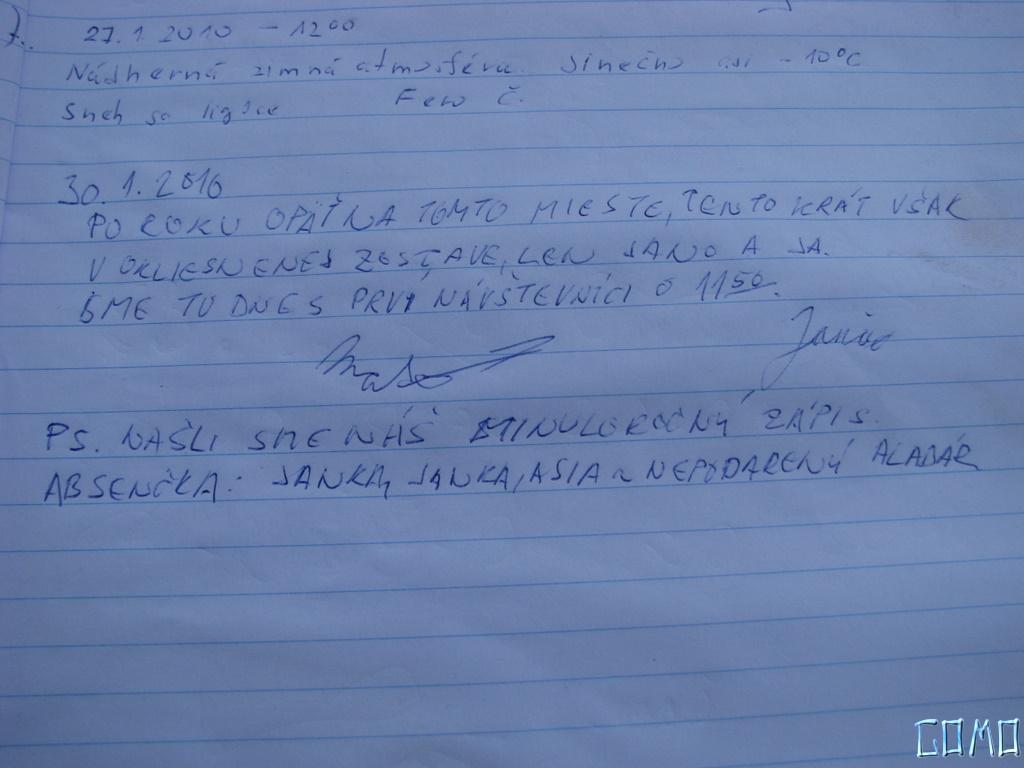 7. 27.1.2010 - 12⁰⁰
Nádherná zimná atmosféra. Slnečno asi -10°C
Sneh sa ligoce Fero Č.
30.1.2010
PO ROKU OPÄŤ NA TOMTO MIESTE, TENTO KRÁT VŠAK
V OKLIESNENEJ ZOSTAVE, LEN JANO A JA.
SME TU DNES PRVÝ NÁVŠTEVNÍCI O 11⁵⁰.
PS. NAŠLI SME NÁŠ MINULOROČNÝ ZÁPIS.
ABSENČKA: JANKA, JANKA, ASIA ~ NEPODARENÝ ALABÁR
GOMO